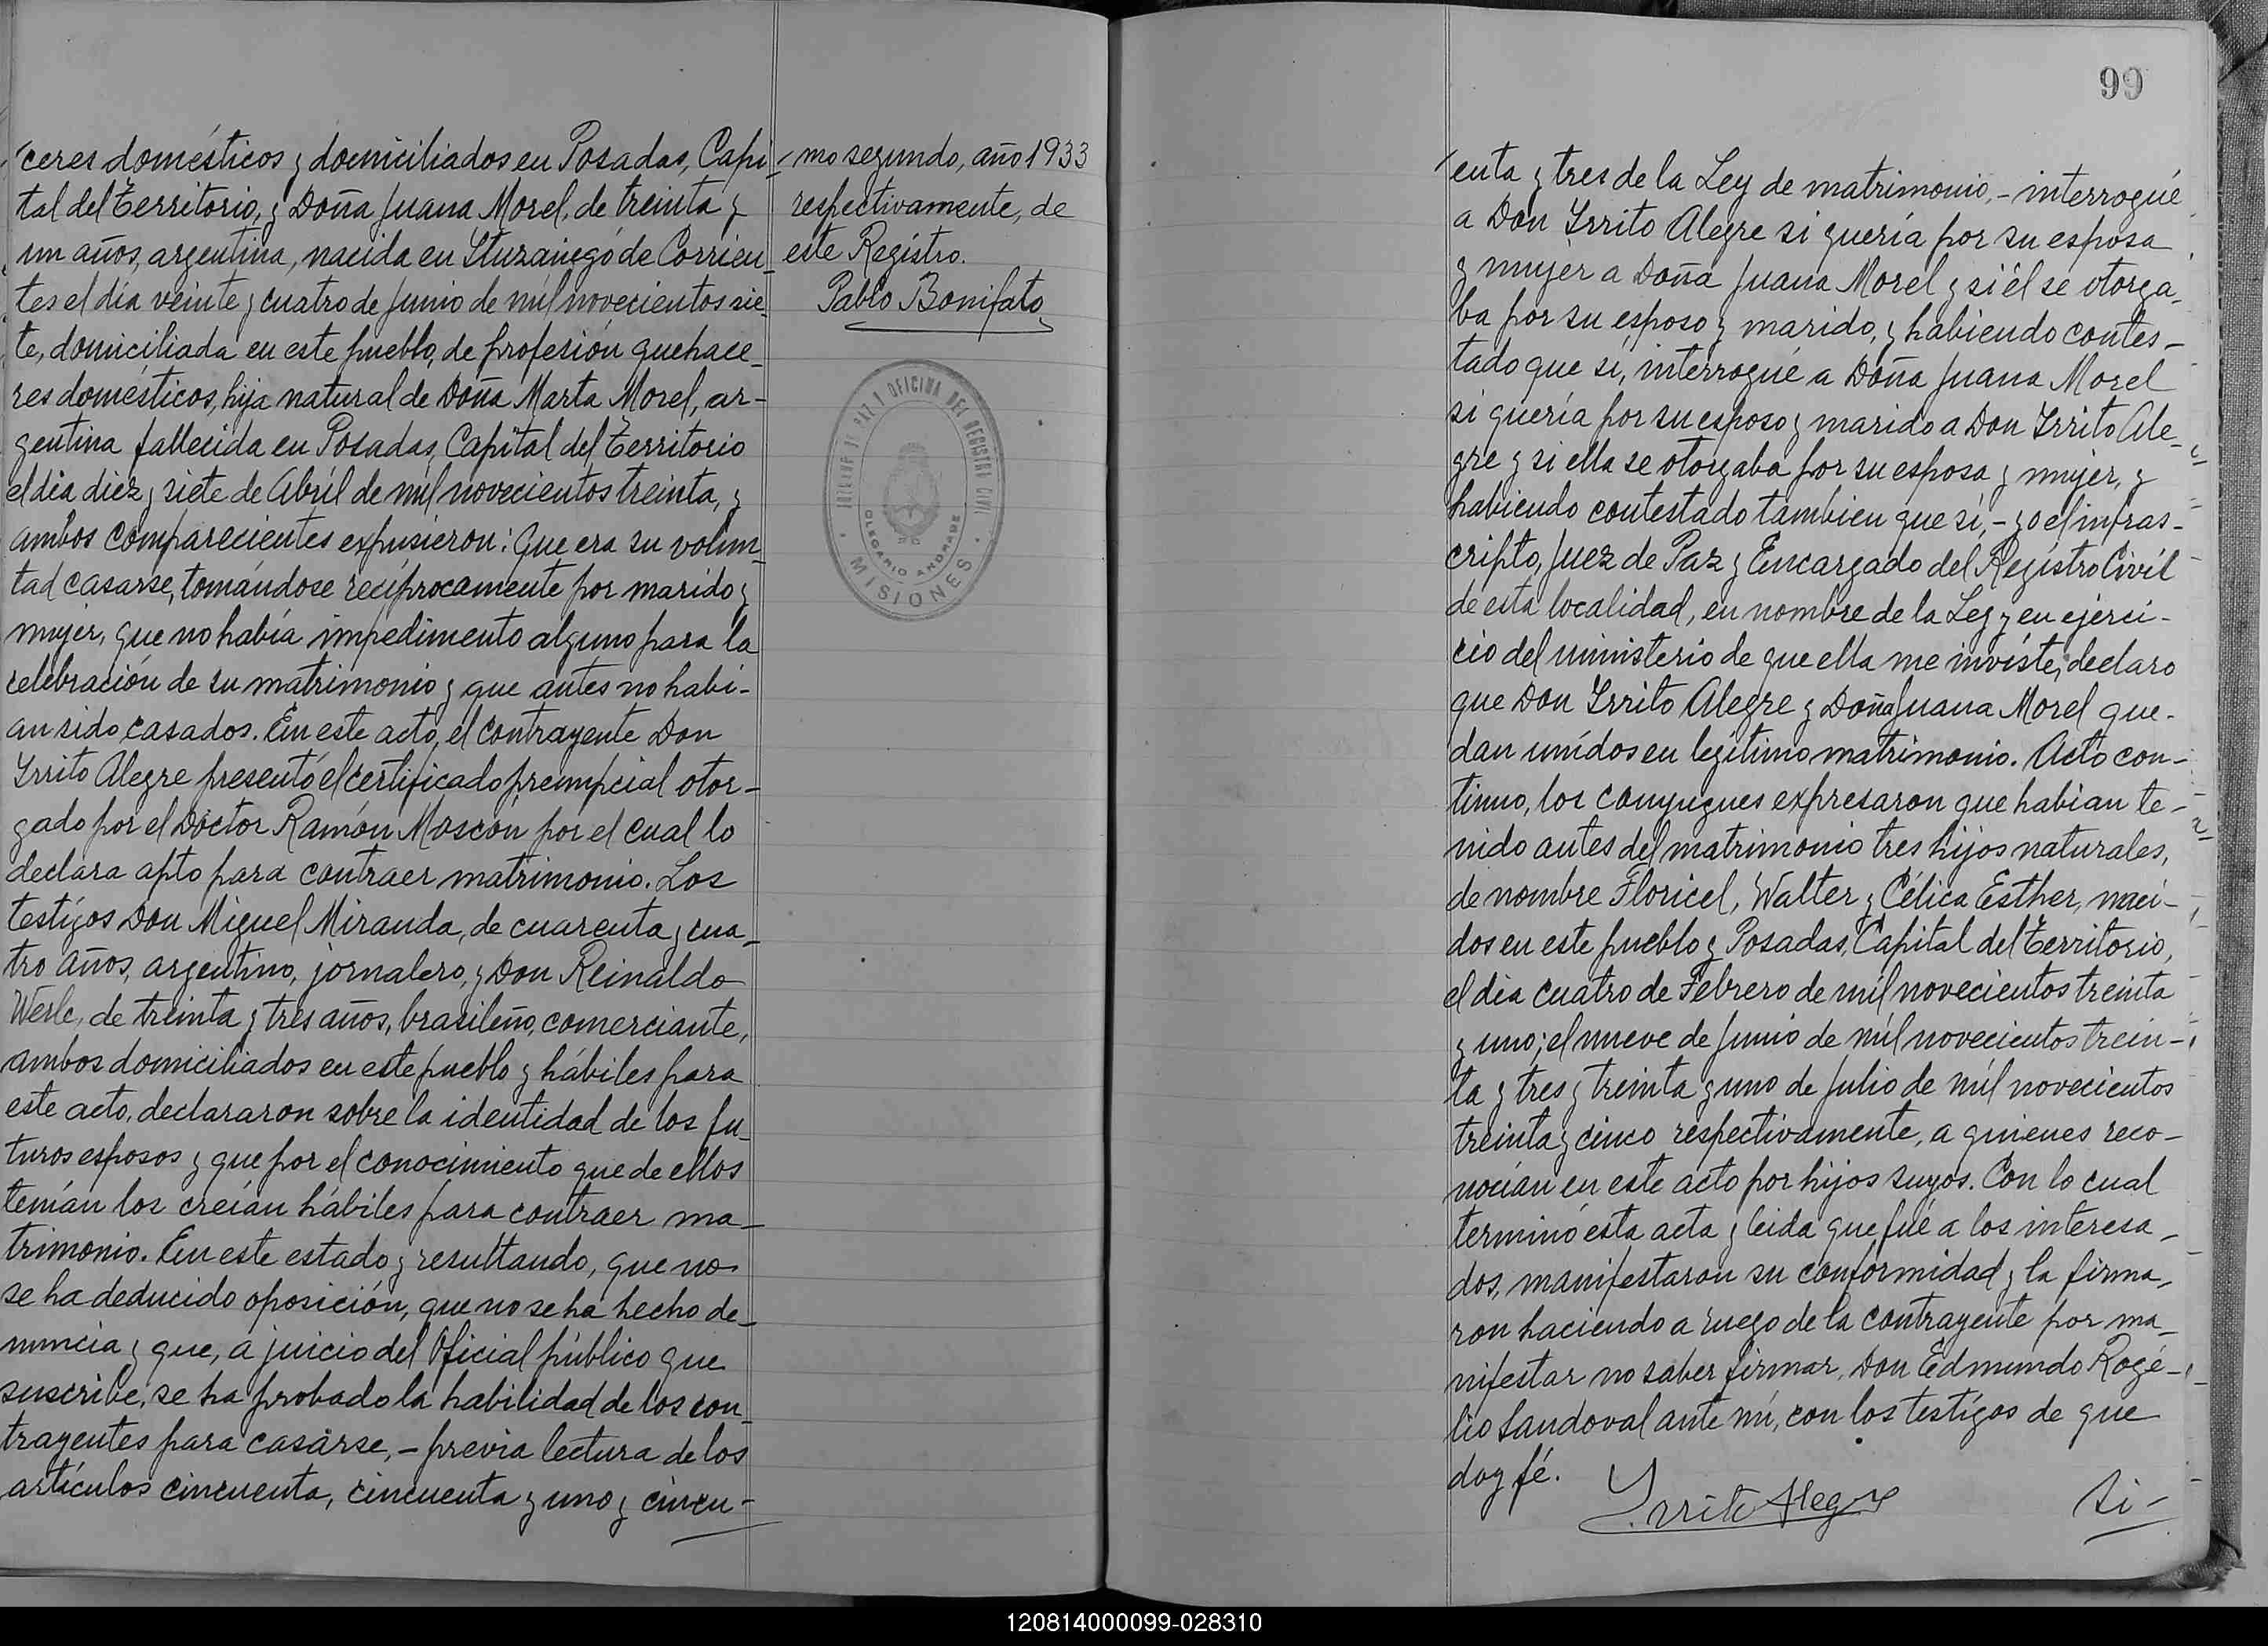 ceres domésticos y domiciliados en Posadas, Capi-
tal del Territorio, y Doña Juana Morel, de treinta y
un años, argentina, nacida en Ituzaingó de Corrien-
tes el día veinte y cuatro de Junio de mil novecientos sie-
te, domiciliada en este pueblo, de profesión quehace-
res domésticos, hija natural de Doña Marta Morel, ar-
gentina fallecida en Posadas, Capital del Territorio
el día diez y siete de Abril de mil novecientos treinta, y
ambos comparecientes expusieron: Que era su volun-
tad casarse, tomándose recíprocamente por marido y
mujer, que no había impedimento alguno para la
celebración de su matrimonio y que antes no habi-
an sido casados. En este acto, el contrayente Don
Yrrito Alegre presentó el certificado prenupcial otor-
gado por el Doctor Ramón Moscón por el cual lo
declara apto para contraer matrimonio. Los
testigos Don Miguel Miranda, de cuarenta y cua-
tro años, argentino, jornalero, y Don Reinaldo
Werle, de treinta y tres años, brasileño, comerciante,
ambos domiciliados en este pueblo y hábiles para
este acto, declararon sobre la identidad de los fu-
turos esposos y que por el conocimiento que de ellos
tenían los creían hábiles para contraer ma-
trimonio. En este estado y resultando, que no
se ha deducido oposición, que no se ha hecho de-
nuncia y que, a juicio del Oficial público que
suscribe, se ha probado la habilidad de los con-
trayentes para casarse, - previa lectura de los
artículos cincuenta, cincuenta y uno y cincu-
mo segundo, año 1933
respectivamente, de
este Registro.
Pablo Bonifato
JUZGADO DE PAZ Y OFICINA DEL REGISTRO CIVIL
OLEGARIO ANDRADE
MISIONES
99
enta y tres de la Ley de matrimonio, - interrogué
a Don Yrrito Alegre si quería por su esposa
y mujer a Doña Juana Morel y si él se otorga-
ba por su esposo y marido, y habiendo contes-
tado que sí, interrogué a Doña Juana Morel
si quería por su esposo y marido a Don Yrrito Ale-
gre y si ella se otorgaba por su esposa y mujer, y
habiendo contestado tambien que sí, - yo el infras-
cripto, Juez de Paz y Encargado del Registro Civil
de esta localidad, en nombre de la Ley y en ejerci-
cio del ministerio de que ella me inviste, declaro
que Don Yrrito Alegre y Doña Juana Morel que-
dan unidos en legítimo matrimonio. Acto con-
tinuo, los conyugues expresaron que habían te-
nido antes del matrimonio tres hijos naturales,
de nombre Floricel, Walter y Célica Esther, naci-
dos en este pueblo y Posadas, Capital del Territorio,
el día cuatro de Febrero de mil novecientos treinta
y uno; el nueve de Junio de mil novecientos trein-
ta y tres y treinta y uno de Julio de mil novecientos
treinta y cinco respectivamente, a quienes reco-
nocían en este acto por hijos suyos. Con lo cual
terminó esta acta y leida que fué a los interesa-
dos, manifestaron su conformidad y la firma-
ron haciendo a ruego de la contrayente por ma-
nifestar no saber firmar, Don Edmundo Rogé-
lio Sandoval ante mí, con los testigos de que
doy fé.
Yrrito Alegre
Si-
120814000099-028310